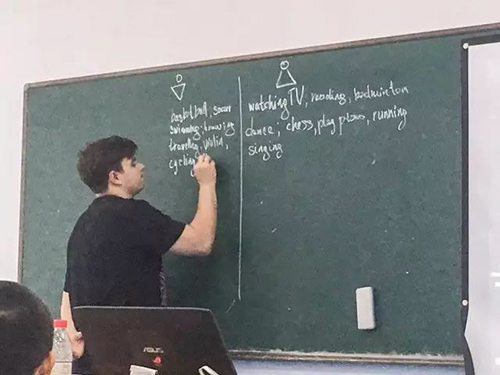 basketball, soccer
swimming,
traveling, violin,
cycling
watching TV, reading, badminton
dance; chess, play piano, running
singing
ASUS